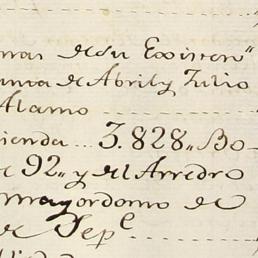 mas de su Existen"
unta de Abril y Julio
Alamo
ienda... 3.828,, Bo-
e 92,, y del Arredro
mayordomo de
e Sepe